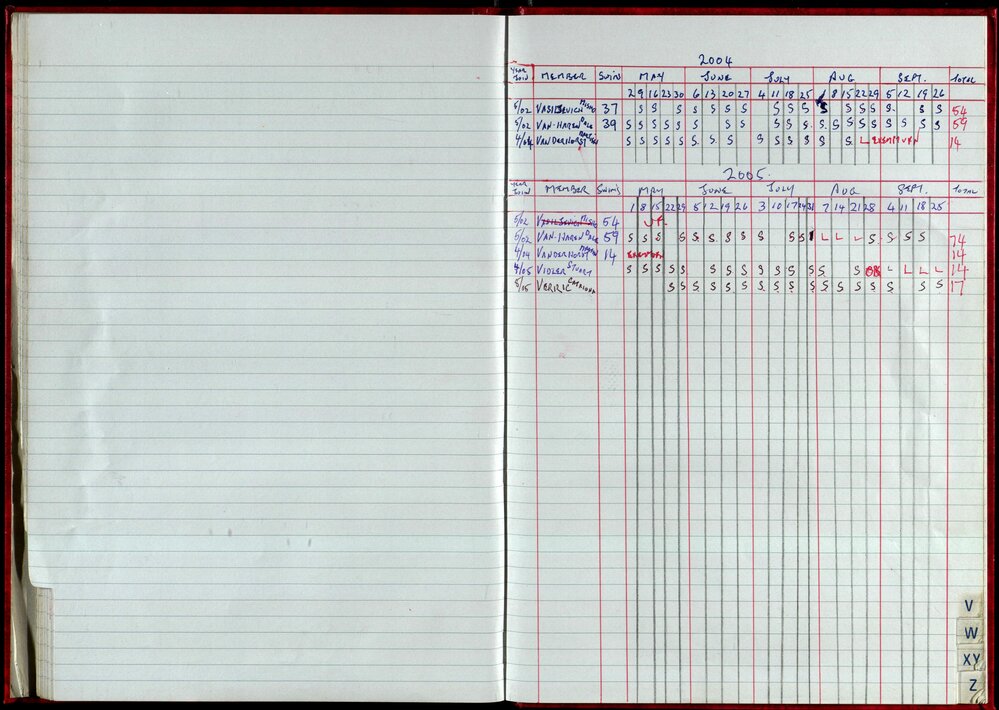 2004
YEAR JOIN MEMBER SWIMS MAY JUNE JULY AUG SEPT. TOTAL
2 9 16 23 30 6 13 20 27 4 11 18 25 1 8 15 22 29 5 12 19 26
5/02 VASILJEVICH 37 S S S S S S S S S S S S S S S S S 54
5/02 VAN-HAREN DALE 39 S S S S S S S S S S S S S S S S S S S S 59
4/04 VANDERHORST S S S S S S S S S S S S S S S L EXEMPTION 14
2005
YEAR JOIN MEMBER SWIMS MAY JUNE JULY AUG SEPT. TOTAL
1 8 15 22 29 5 12 19 26 3 10 17 24 31 7 14 21 28 4 11 18 25
5/02 54
5/02 VAN-HAREN DALE 59 S S S S S S S S S S S S L L L S S S S 74
4/04 VANDERHORST 14 14
4/05 VIDLER STUART S S S S S S S S S S S S S S S L L L L 14
5/05 S S S S S S S S S S S S S S S S S 17
V
W
XY
Z